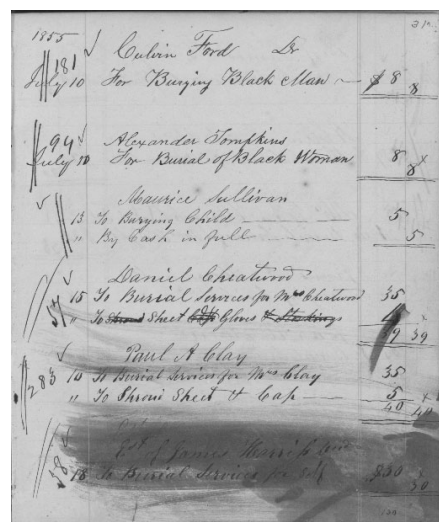 1855
181 Calvin Ford Dr
July 10 For Burying Black Man $ 8 8
94 Alexander Tompkins
July 10 For Burial of Black Woman 8 8
Maurice Sullivan
13 To Burying Child 5
" By Cash in full 5
Daniel Cheatwood
54 15 To Burial Services for Mrs Cheatwood 35
" To Shroud Sheet Gloves & Stockings
39
Paul A Clay
283 10 To Burial Services for Mrs Clay 35
" To Shroud Sheet & Cap 5
40 40
Est of James
38 18 To Burial Services for Self $30
30